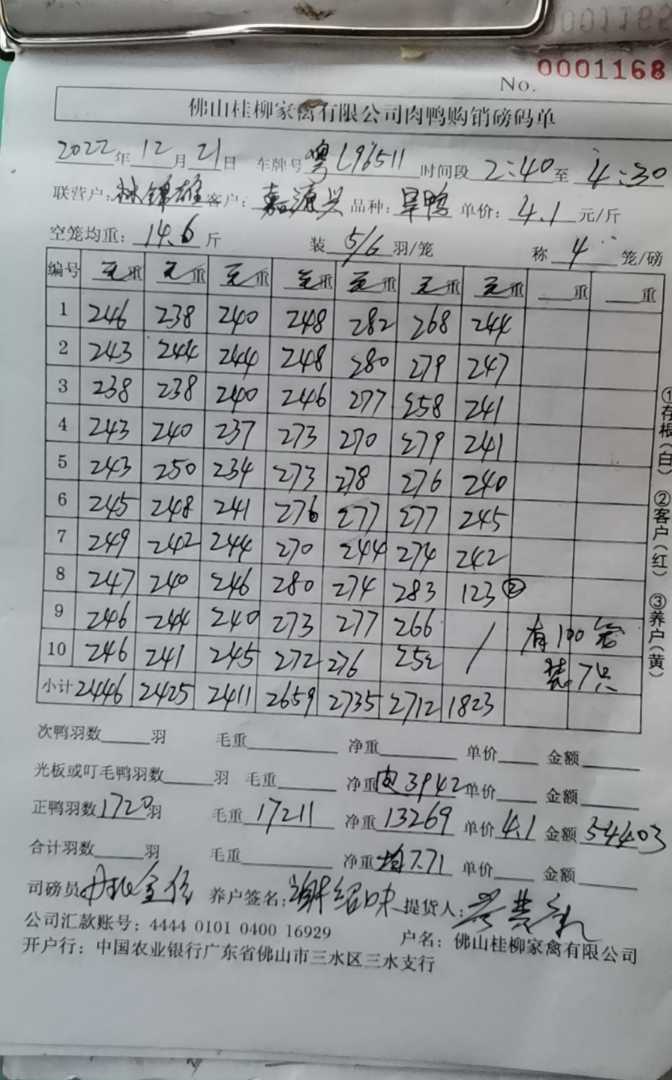 No. 0001168
佛山桂柳家禽有限公司肉鸭购销磅码单
2022年12月21日 车牌号粤L96511 时间段2:40至4:30
联营户:林锦雄 客户:嘉源兴 品种:旱鸭 单价:4.1元/斤
空笼均重:14.6斤 装5/6羽/笼 称4笼/磅
编号 毛重 毛重 毛重 毛重 毛重 毛重 毛重 重 重
1 246 238 240 248 282 268 244
2 243 244 244 248 280 279 247
3 238 238 240 246 277 258 241
4 243 240 237 273 270 279 241
5 243 250 234 273 278 276 240
6 245 248 241 276 277 277 245
7 249 242 244 270 244 274 242
8 247 240 246 280 274 283 123②
9 246 244 240 273 277 266 / 有100笼
10 246 241 245 272 276 252 / 装7只
小计 2446 2425 2411 2659 2735 2712 1823
次鸭羽数 羽 毛重 净重 单价 金额
光板或叮毛鸭羽数 羽 毛重 净重 3942 单价 金额
正鸭羽数1720羽 毛重17211 净重13269 单价4.1 金额54403
合计羽数 羽 毛重 净重均7.71 单价 金额
司磅员 养户签名: 提货人:
公司汇款账号:4444 0101 0400 16929 户名:佛山桂柳家禽有限公司
开户行:中国农业银行广东省佛山市三水区三水支行
①存根(白) ②客户(红) ③养户(黄)